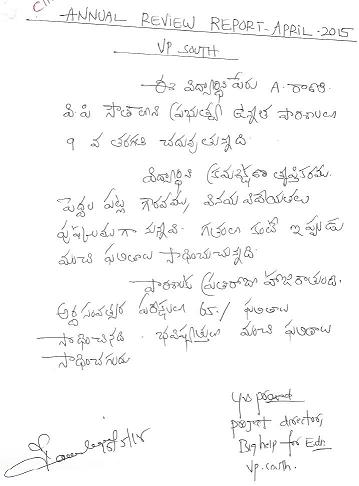 ANNUAL REVIEW REPORT - APRIL - 2015
VP SOUTH
ఈ విద్యార్థిని పేరు A. రాణి
వి.పి సౌత్ లోని ప్రభుత్వ ఉన్నత పాఠశాలలో
9 వ తరగతి చదువుతున్నది.
విద్యార్థిని క్రమశిక్షణ తృప్తికరము.
పెద్దల పట్ల గౌరవము, వినయ విధేయతలు
పుష్కలముగా వున్నవి. గతంలో కంటే ఇప్పుడు
మంచి ఫలితాలు సాధించుచున్నది.
పాఠశాలకు ప్రతిరోజూ హాజరౌతుంది.
అర్ధ సంవత్సర పరీక్షలలో 65./. ఫలితాలు
సాధించినది. భవిష్యత్తులో మంచి ఫలితాలు
సాధించగలదు
project director,
Big help for Edn.
Vp. south.